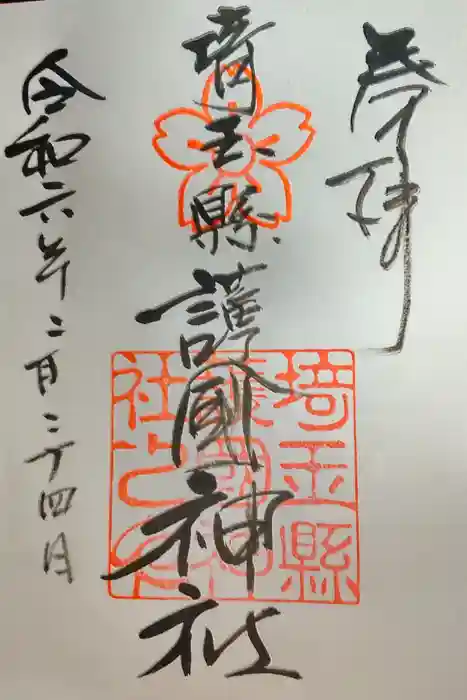 奉拝
埼玉縣
護國神社
令和六年二月二十四日
埼玉縣
護國神
社之印